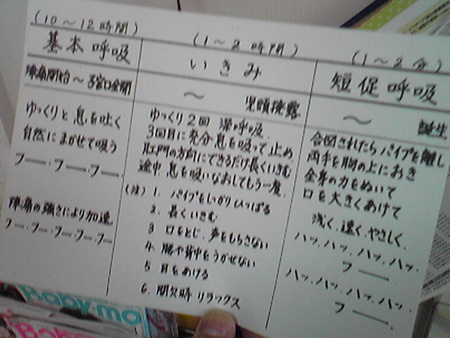 (10〜12時間)
基本呼吸
陣痛開始〜子宮口全開
ゆっくりと息を吐く
自然にまかせて吸う
フー―.フー―.フー―.
陣痛の強さにより加速
フー.フー.フー.フー.フー
(1〜2時間)
いきみ
〜 児頭発露
ゆっくり2回 深呼吸.
3回目に充分息を吸って止め
肛門の方向にできるだけ長くいきむ
途中息を吸いなおしてもう一度.
(注) 1. パイプをしっかりひっぱる
2. 長くいきむ
3 口をとじ、声をもらさない
4. 腰や背中をうかせない
5 目をあける
6. 間欠時 リラックス
(1〜2分)
短促呼吸
〜 誕生
合図されたらパイプを離し
両手を胸の上におき
全身の力をぬいて
口を大きくあけて
浅く、速く、やさしく、
ハッ、ハッ、ハッ、ハッ.
フー―
ハッ、ハッ、ハッ、ハッ.
フー―.
Baby-mo